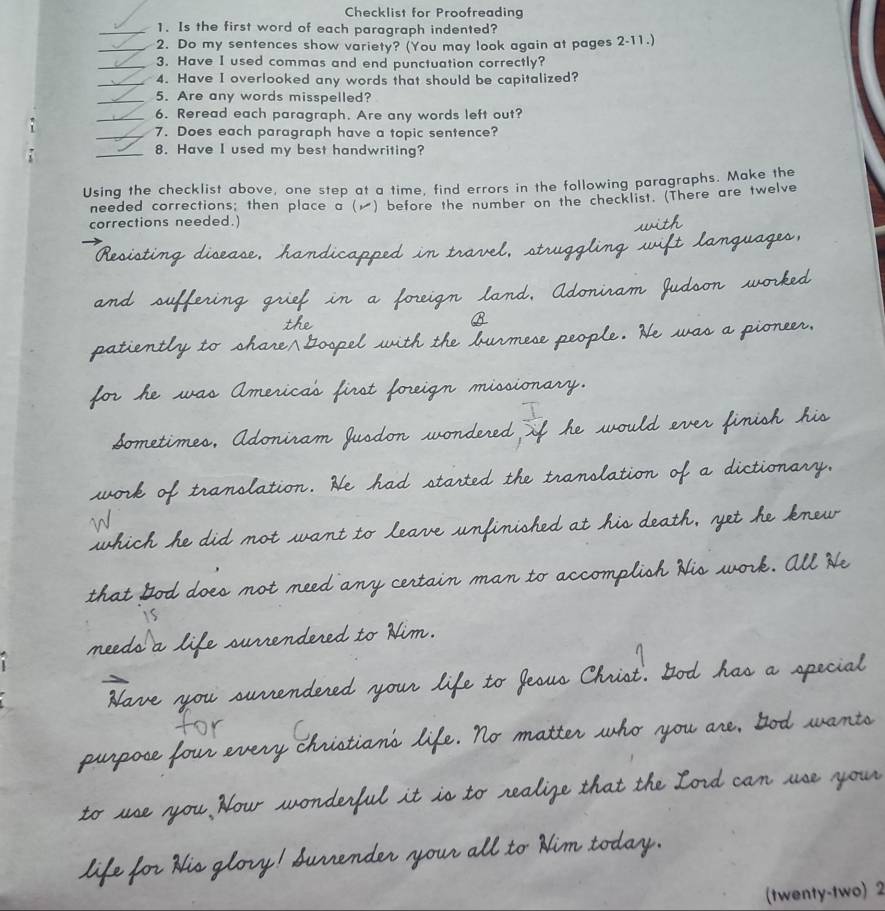 Checklist for Proofreading
✓ 1. Is the first word of each paragraph indented?
✓ 2. Do my sentences show variety? (You may look again at pages 2-11.)
✓ 3. Have I used commas and end punctuation correctly?
✓ 4. Have I overlooked any words that should be capitalized?
✓ 5. Are any words misspelled?
✓ 6. Reread each paragraph. Are any words left out?
✓ 7. Does each paragraph have a topic sentence?
✓ 8. Have I used my best handwriting?
Using the checklist above, one step at a time, find errors in the following paragraphs. Make the
needed corrections; then place a (✓) before the number on the checklist. (There are twelve
corrections needed.)
with
→ Resisting disease, handicapped in travel, struggling wift languages,
and suffering grief in a foreign land, Adoniram Judson worked
the B
patiently to share ^ Gospel with the burmese people. He was a pioneer,
for he was America's first foreign missionary.
I
Sometimes, Adoniram Jusdon wondered, if he would ever finish his
work of translation. He had started the translation of a dictionary,
W
which he did not want to leave unfinished at his death, yet he knew
that God does not need any certain man to accomplish His work. All He
is
needs ^ a life surrendered to Him.
→ ?
Have you surrendered your life to Jesus Christ. God has a special
for C
purpose four every christian's life. No matter who you are, God wants
to use you. How wonderful it is to realize that the Lord can use your
life for His glory! Surrender your all to Him today.
(twenty-two) 2